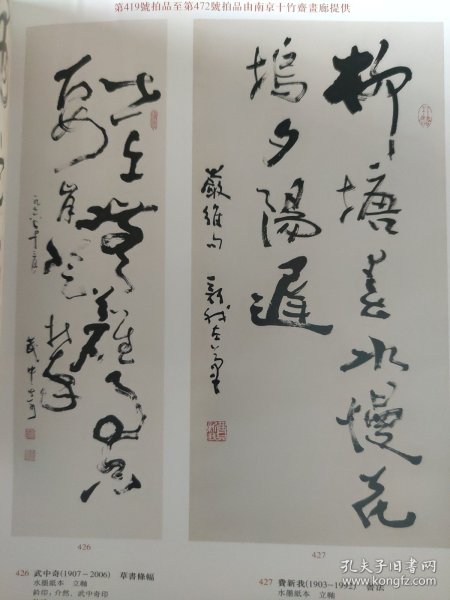 第419號拍品至第472號拍品由南京十竹齋畫廊提供
世上無難事只
要肯登攀
武中奇
426
柳塘春水慢花
塢夕陽遲
嚴維句 新我左筆
427
426 武中奇(1907－2006) 草書條幅
水墨紙本 立軸
鈐印：介然、武中奇印
427 費新我(1903－1992) 書法
水墨紙本 立軸
孔夫子旧书网